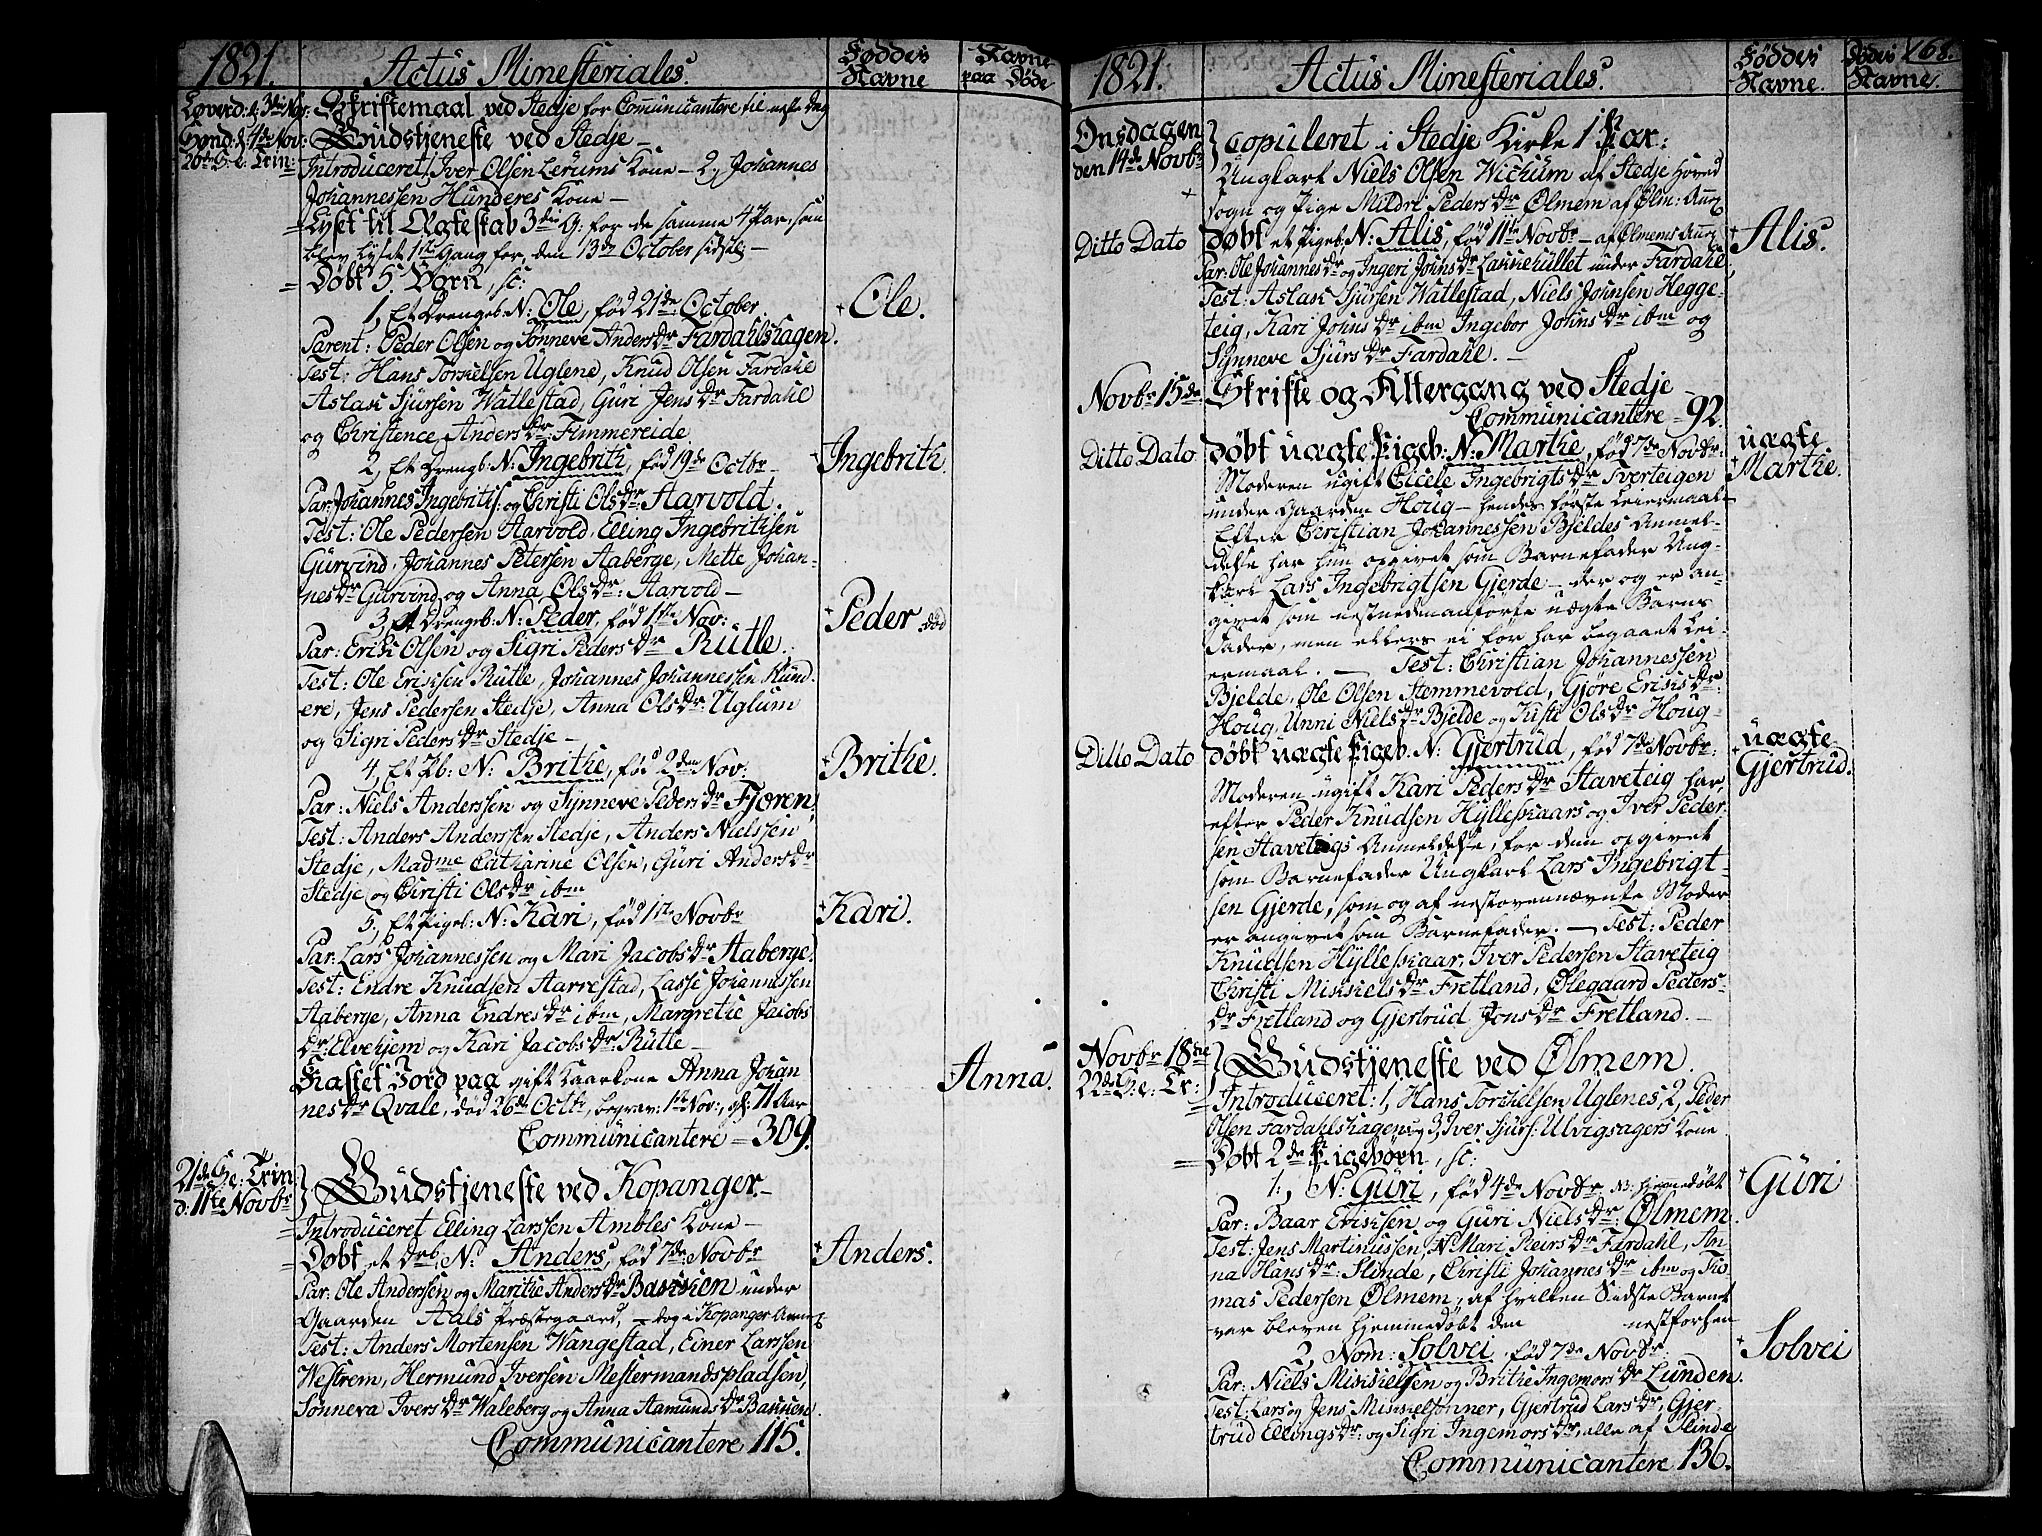 1821.
Actus Minesteriales.
Føddes Navne
Navne paa Døde
Løverd: d: 3die Nov: Skriftemaal ved Stedje for Comunicantere til neste Dag
Sønd: d: 4de Nov: Gudstjeneste ved Stedje –
20de S. e. Trin:
Introduceret 1, Iver Olsen Lerums Kone – 2, Johannes
Johannessen Hunderes Kone –
Lyst til Ægteskab 3die G: for de samme 4 Par, som
blev lyset 1ste Gang for, den 13de October sidstl: –
Døbt 5 Børn, sc:
1, Et Drengeb: N: Ole, fød 21de October. Ole.
Parent: Peder Olsen og Sønneve Anders Dr Fardahlshagen.
Test: Hans Torkelsen Uglene, Knud Olsen Fardahl
Aslak Sjursen Watlestad, Guri Jens Dr Fardahl
og Christence Anders Dr: Fimmereide
2, Et Drengb: N: Ingebrith, fød 19de Octbr – Ingebrith
Par: Johannes Ingebritts: og Christi Ols Dr: Aarvold.
Test: Ole Pedersen Aarvold, Elling Ingebrithsen
Gurvind, Johannes Petersen Aaberge, Mette Johan-
nes Dr Gurvind og Anna Ols Dr: Aarvold –
3, Et Drengeb: N: Peder, fød 1ste Nov: Peder død
Par: Erik Olsen og Sigri Peders Dr Rutle.
Test: Ole Eriksen Rutle, Johannes Johannessen Hund.
ere, Jens Pedersen Stedje, Anna Ols Dr: Uglum
og Sigri Peders Dr Stedje –
4, Et Pb: N: Brithe, fød 2den Nov: Brithe.
Par: Niels Anderssen og Synneve Peders Dr Fjæren
Test: Anders Anderssen Stedje, Anders Nielssen
Stedje, Madme Catharine Olsen, Guri Anders Dr
Stedje og Christi Ols Dr ibm
5, Et Pigeb: N: Kari, fød 1ste Novbr Kari.
Par: Lars Johannessen og Mari Jacobs Dr Aaberge.
Test: Endre Knudsen Aarrestad, Lasse Johannessen
Aaberge, Anna Endres Dr ibm, Margrethe Jacobs
Dr: Elvehjem og Kari Jacobs Dr: Rutle –
Kastet Jord paa gift Kaarkone Anna Johan Anna.
nes Dr Qvale, død 26de Octbr, begrav: 1ste Nov:, gl: 71 Aar
Communicantere – 309.
21de S. e: Trin
d: 11te Novbr
Gudstjeneste ved Kopanger –
Introduceret Elling Larssen Ambles Kone –
Døbt et Drb: N: Anders, fød 7de Novbr Anders.
Par: Ole Anderssen og Marithe Anders Dr Bakken under
Gaarden Aals Præstegaard, – dog i Kopanger Annex
Test: Anders Mortensen Wangestad, Einer Larssen
Westrem, Hermund Iversen Mestermandspladsen,
Sønneva Ivers Dr Waleberg og Anna Aamunds Dr Bakken.
Communicantere 115.
1821.
Actus Minesteriales.
Føddes Navne.
Dødes Navne.
168.
Onsdagen
den 14de Novbr
Copuleret i Stedje Kirke 1 Par:
Ungkarl Niels Olsen Wichum af Stedje Hoved
sogn og Pige Mildri Peders Dr Ølmem af Ølm: Ann:
Ditto Dato Døbt et Pigeb: N: Alis, fød 11te Novbr – af Ølmems Ann: Alis.
Par: Ole Johannes Dr og Ingeri Johns Dr Lakkehullet under Fardahl
Test: Aslak Sjursen Watlestad, Niels Johnsen Hegge-
teig, Kari Johns Dr ibm Ingebor Johns Dr ibm og
Synneve Sjurs Dr Fardahl. –
Novbr 15de Skrifte og Altergang ved Stedje
Communicantere – 92.
Ditto Dato Døbt uægte Pigeb: N: Marthe, fød 7de Novbr: uægte Marthe.
Moderen ugift Cicele Ingebrigts Dr Tverteigen
under Gaarden Houg – hendes første Leiermaal
Efter Christian Johannessen Bjeldes Anmel-
delse har hun opgivet som Barnefader Ung-
karl Lars Ingebrigtsen Gjerde – der og er an-
givet som nestnedenanførte uægte Barns
Fader, men ellers ei før har begaaet Lei-
ermaal. – Test: Christian Johannessen
Bjelde, Ole Olsen Stemmevold, Gjøre Eriks Dr
Houg, Unni Niels Dr Bjelde og Kisti Ols Dr Houg –
Ditto Dato Døbt uægte Pigeb. N: Gjertrud, fød 7de Novbr: uægte Gjertrud.
Moderen ugift Kari Peders Dr Staveteig har
efter Peder Knudsen Hylleskaars og Iver Peder-
sen Staveteigs Anmeldelse, for dem opgivet
som Barnefader Ungkarl Lars Ingebrigt-
sen Gjerde, som og af nestovennævnte Moder
er angivet som Barnefader. – Test: Peder
Knudsen Hylleskaar, Iver Pedersen Staveteig
Christi Mikkiels Dr Fretland, Ølegaard Peders-
Dr Fretland og Gjertrud Jons Dr Fretland. –
Novbr 18de
22de S. e: Tr:
Gudstjeneste ved Ølmem.
Introduceret: 1, Hans Torchelsen Uglenes, 2, Peder
Olsen Fardahlshagens og 3, Iver Sjurs: Ulvigsagers Kone
Døbt 2de Pigebørn, sc:
1, N: Guri, fød 4de Novbr NB: hjemedøbt Guri
Par: Baar Eriksen og Guri Niels Dr: Ølmem.
Test: Jens Martinussen, N Mari Reirs Dr Fardahl, An-
na Hans Dr: Slinde, Christi Johannes Dr ibm og Tho
mas Pedersen Ølmem, af hvilken Sidste Barnet
var bleven hjemmedøbt den nestforhen
2 Nom: Solvei, fød 7de Novbr: Solvei
Par: Niels Mikkielsen og Brithe Ingemors Dr Lunden.
Test: Lars og Jens Mikkielsønner, Gjertrud Lars Dr, Gjer
trud Ellings Dr: og Sigri Ingemors Dr, alle af Slinde
Communicantere 136.